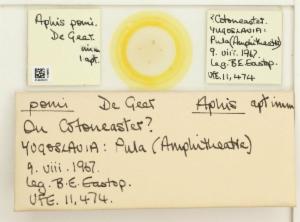 Aphis pomi.
De Geer
imm
1 apt.
?Cotoneaster.
YUGOSLAVIA:
Pula (Amphitheatre)
9. viii. 1967.
Leg. B.E. Eastop.
VFE. 11,474
pomi De Geer Aphis apt imm
On Cotoneaster?
YUGOSLAVIA: Pula (Amphitheatre)
9. viii. 1967.
Leg. B.E. Eastop.
VFE. 11,474.